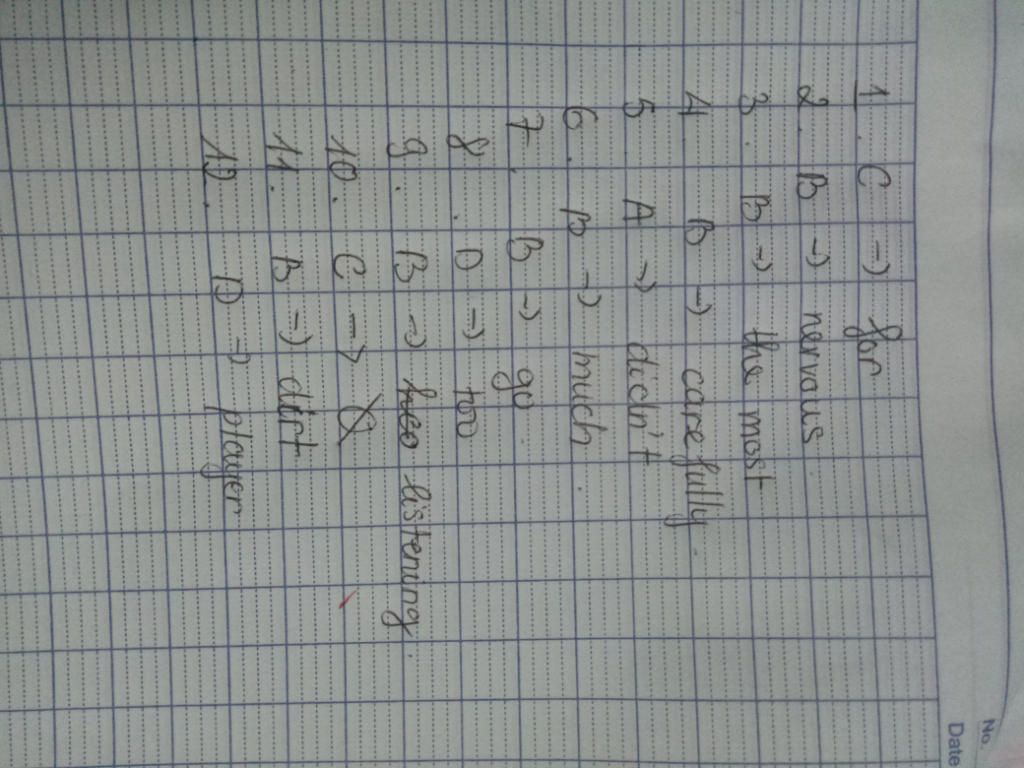 No.
Date
1. C → for
2. B → nervous
3. B → the most
4 B → carefully
5 A → didn't
6. B → much
7. B → go
8. D → too
9. B → listening.
10. C → Ø
11. B → dirt
12. D → player